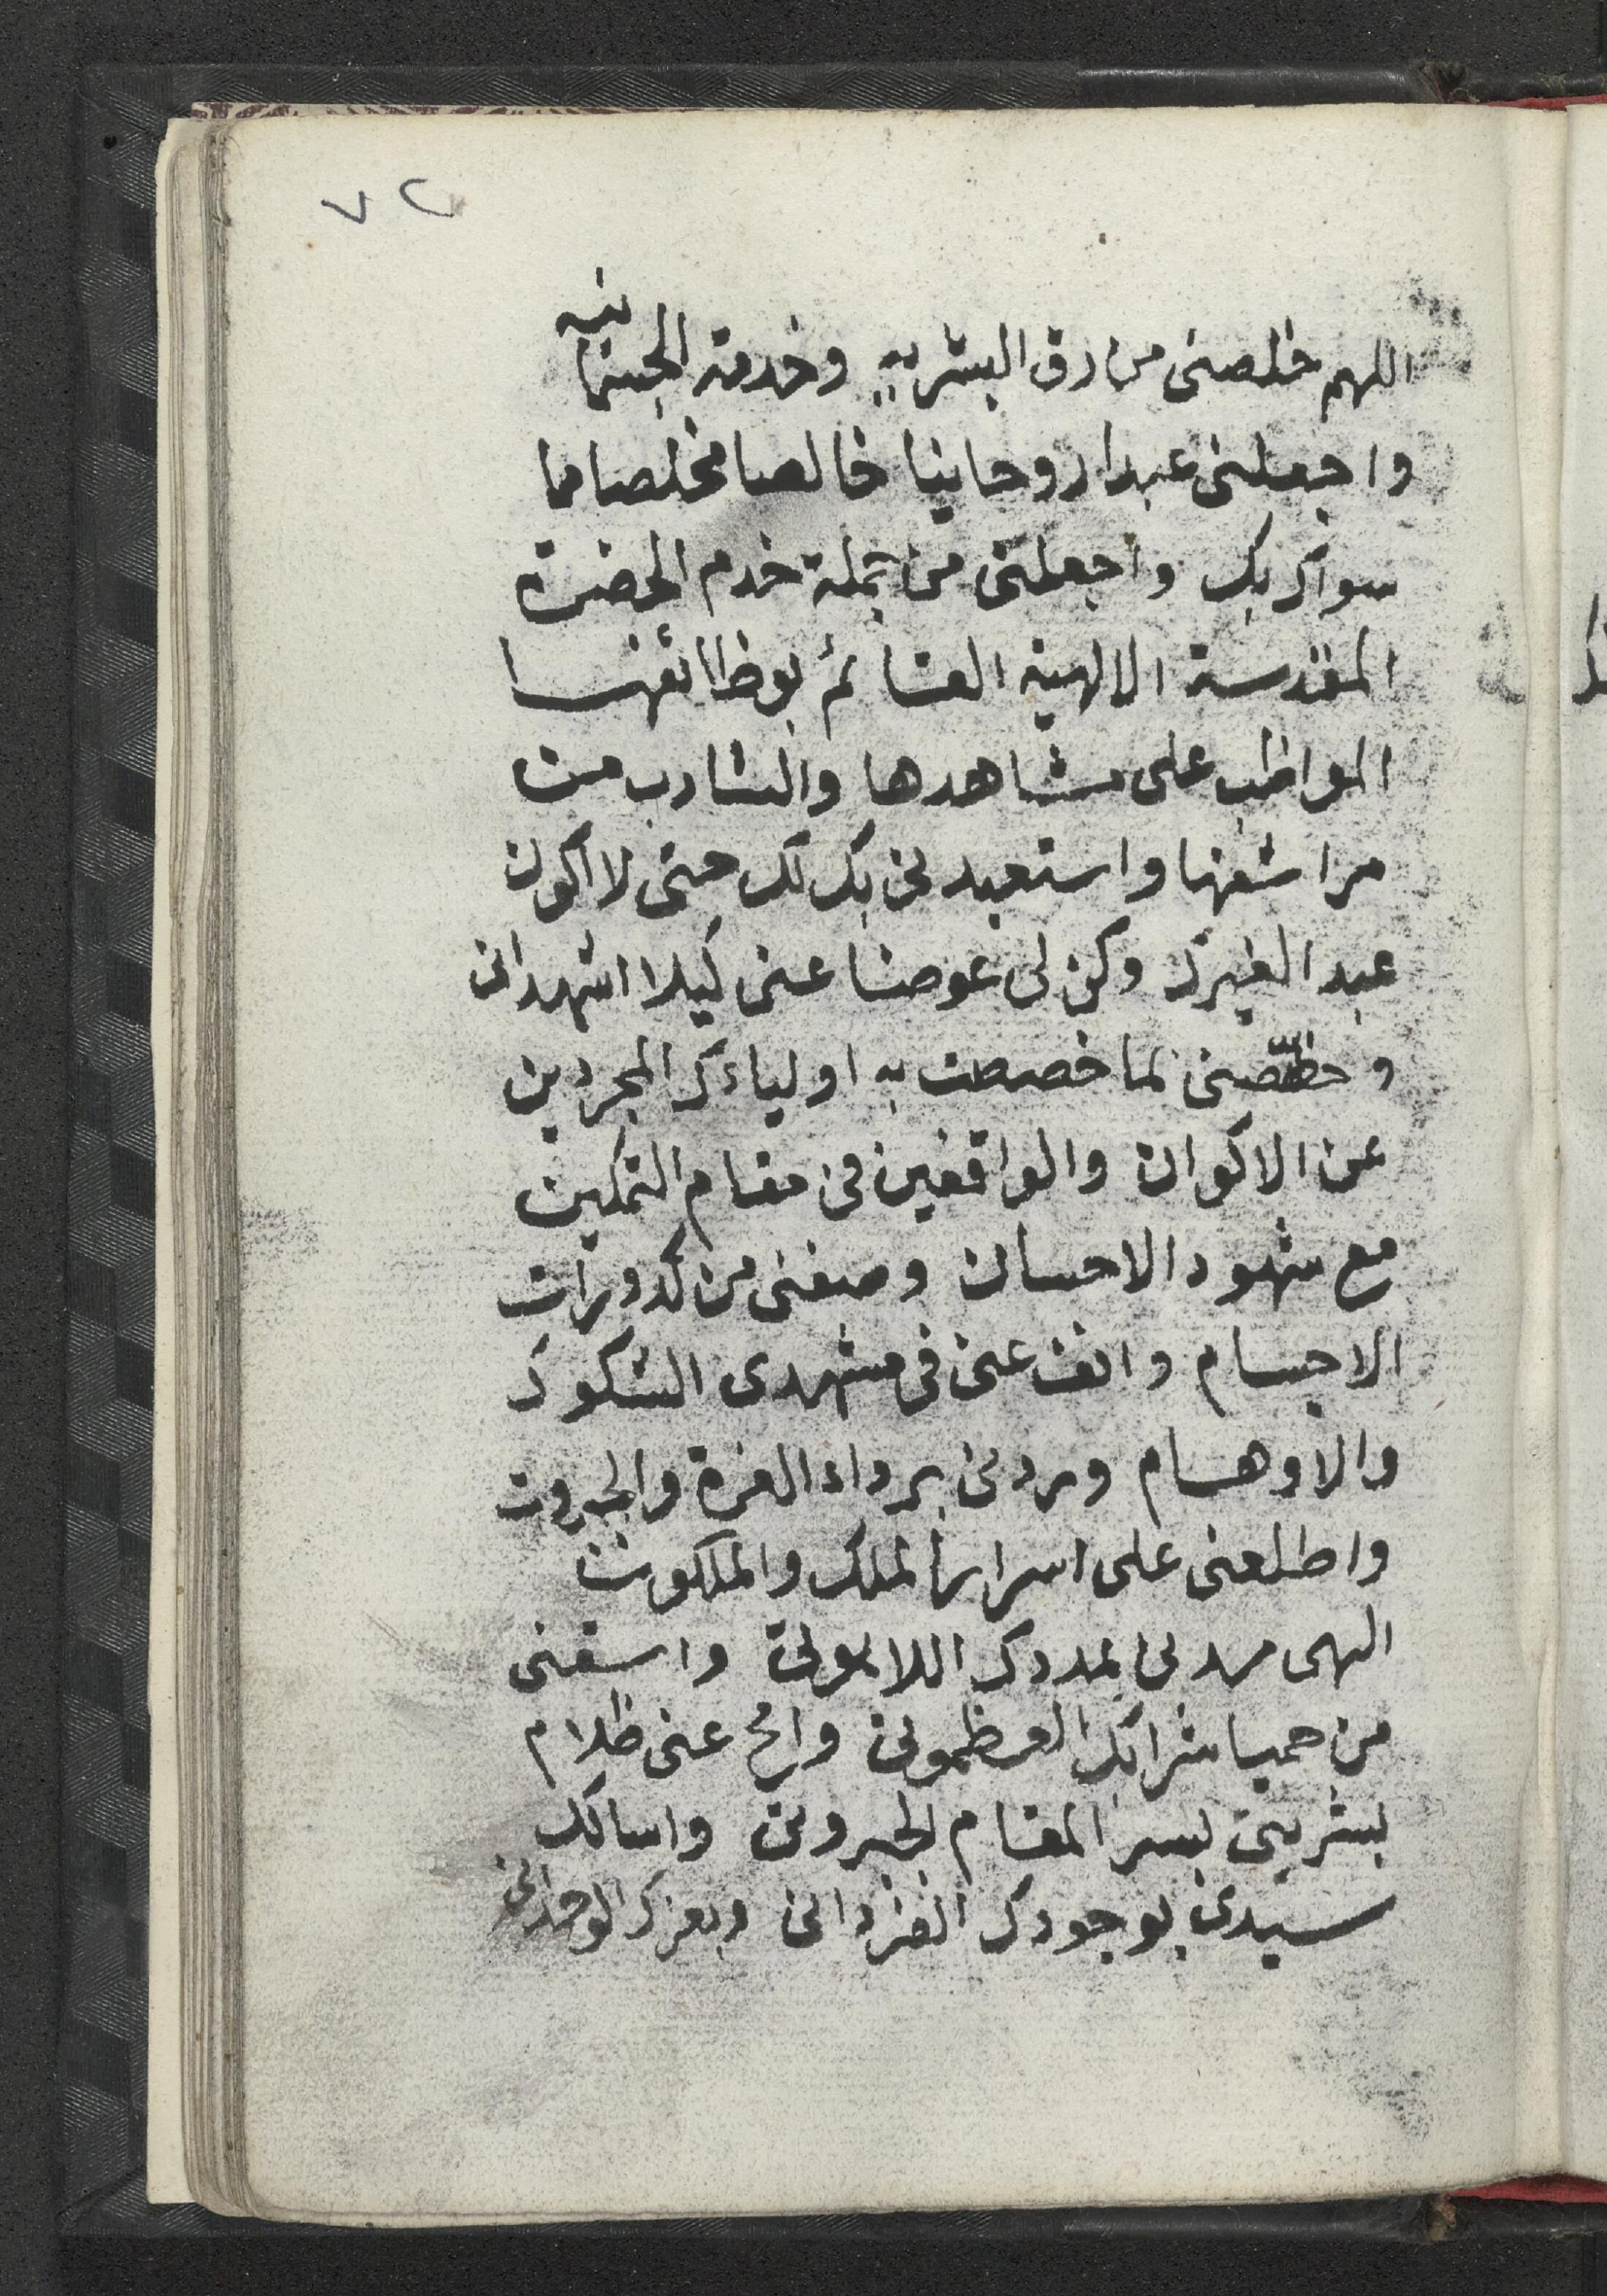 ٧٢
اللهم خلصنى من رق البشريه وخدمة الجسمانيه
واجعلنى عبدا روحانيا خالصا مخلصا مما
سواك بك واجعلنى من جملة خدم الحضرة
المقدسة الالهية القائم بوظائفها
المواظب على مشاهدها والشارب من
مراشفها واستعبدنى بك لك حتى لا اكون
عبدا لغيرك وكن لى عوضا عنى كيلا اشهد انى
وخصّصنى بما خصصت به اولياءك المجردين
عن الاكوان والواقفين فى مقام التمكين
مع شهود الاحسان وصفنى من كدورات
الاجسام وانف عنى فى مشهدى الشكوك
والاوهام وردنى برداء العزة والجبروت
واطلعنى على اسرار الملك والملكوت
الهى مدنى بمددك اللاهوتى واسقنى
من حميا شرابك العظموتى وامح عنى ظلام
بشريتى بسر المقام الجبروتى واسالك
سيدى بوجودك الفردانى وبعزك الوحدانى